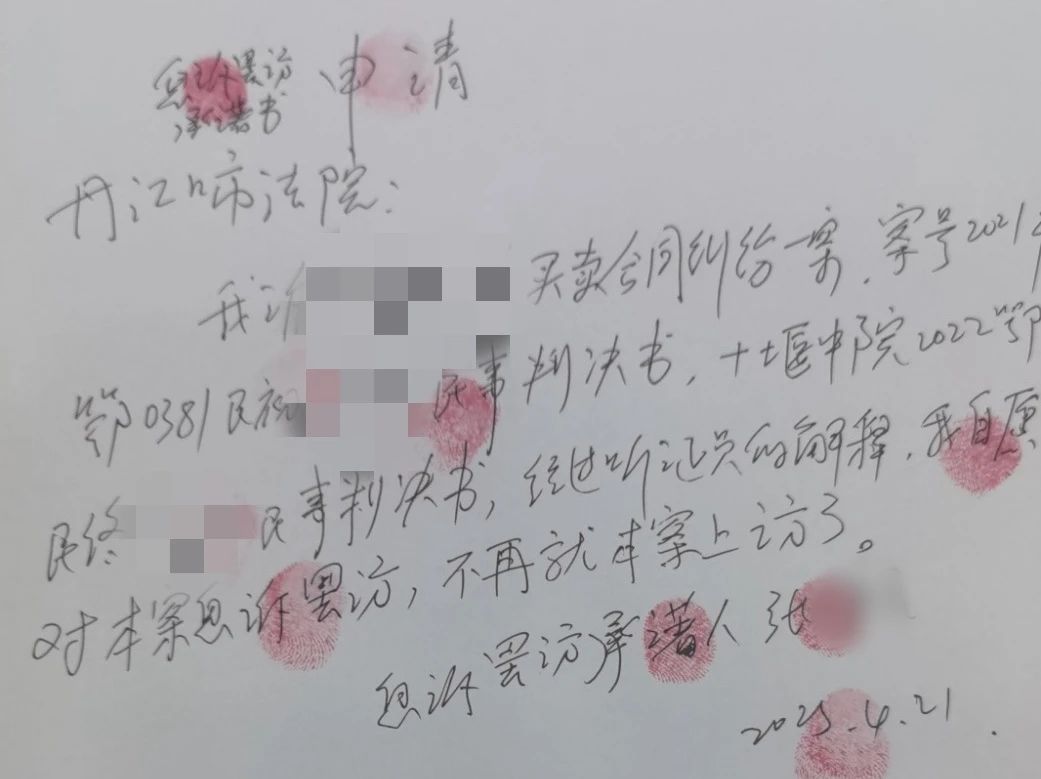 息诉罢访 申请
承诺书
丹江口市法院：
我诉 买卖合同纠纷一案，案号2021
鄂0381民初 民事判决书，十堰中院2022鄂
民终 民事判决书，经过听证员的解释，我自愿
对本案息诉罢访，不再就本案上访了。
息诉罢访承诺人 张
2025.4.21.